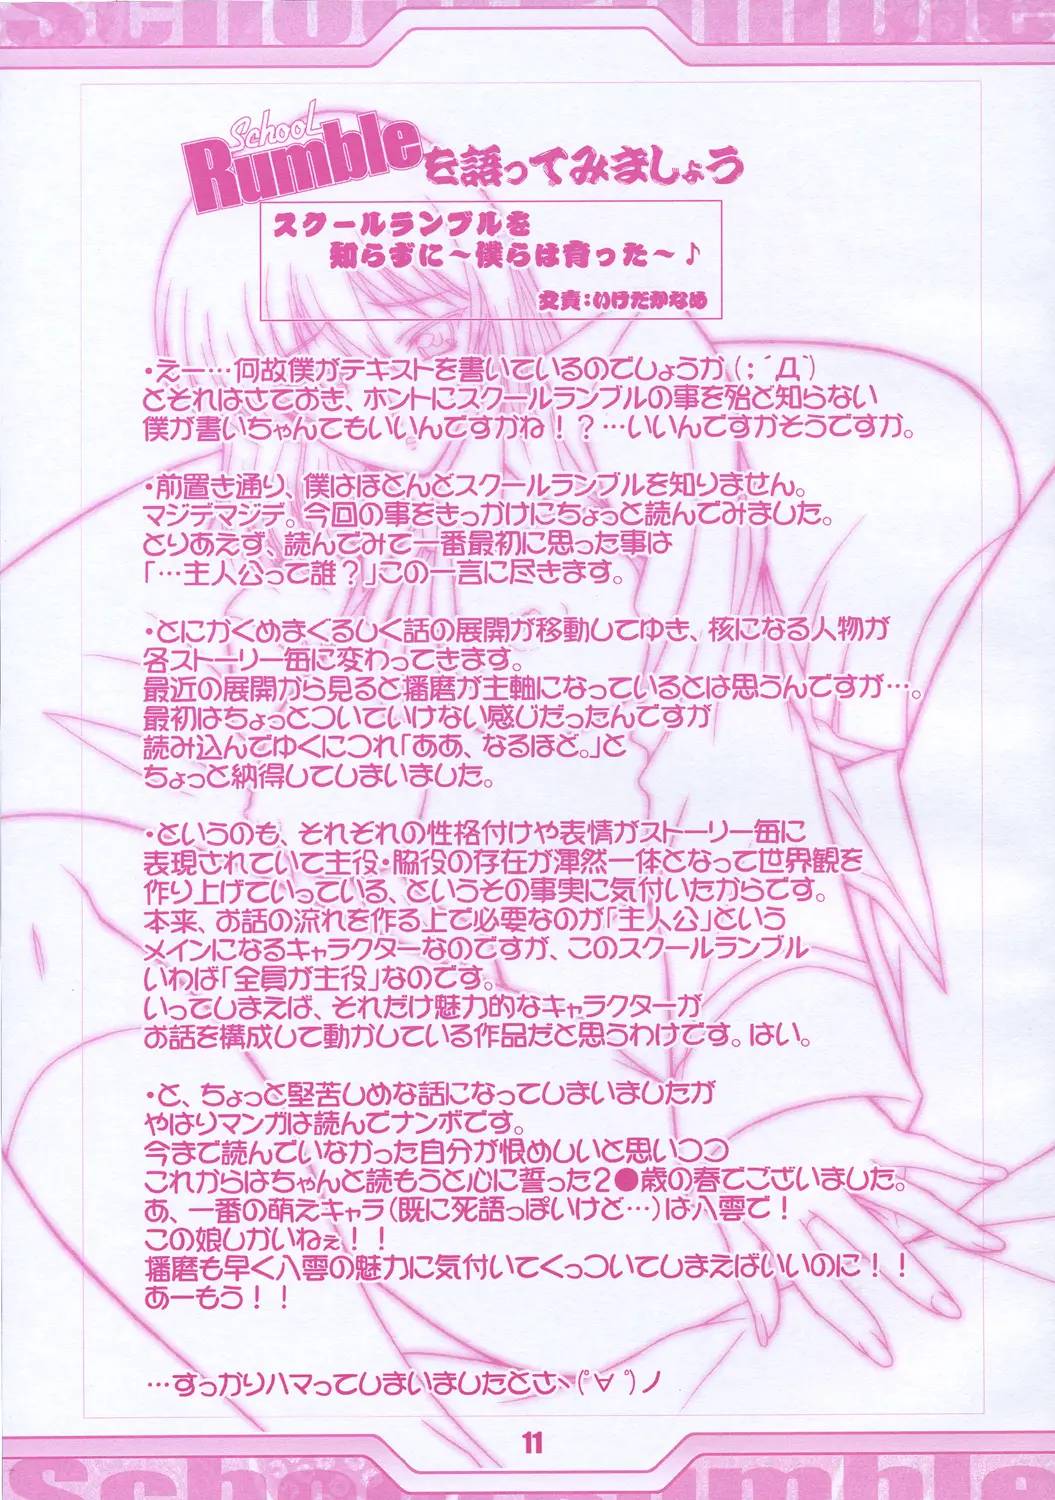 School Rumble
School
Rumbleを語ってみましょう
スクールランブルを
知らずに～僕らは育った～♪
文責：いけだかなめ
・えー…何故僕がテキストを書いているのでしょうか(；´Д`)
とそれはさておき、ホントにスクールランブルの事を殆ど知らない
僕が書いちゃんてもいいんですかね！？…いいんですかそうですか。
・前置き通り、僕はほとんどスクールランブルを知りません。
マジデマジデ。今回の事をきっかけにちょっと読んでみました。
とりあえず、読んでみて一番最初に思った事は
「…主人公って誰？」この一言に尽きます。
・とにかくめまぐるしく話の展開が移動してゆき、核になる人物が
各ストーリー毎に変わってきます。
最近の展開から見ると播磨が主軸になっているとは思うんですが…。
最初はちょっとついていけない感じだったんですが
読み込んでゆくにつれ「ああ、なるほど。」と
ちょっと納得してしまいました。
・というのも、それぞれの性格付けや表情がストーリー毎に
表現されていて主役・脇役の存在が渾然一体となって世界観を
作り上げていっている、というその事実に気付いたからです。
本来、お話の流れを作る上で必要なのが「主人公」という
メインになるキャラクターなのですが、このスクールランブル
いわば「全員が主役」なのです。
いってしまえば、それだけ魅力的なキャラクターが
お話を構成して動かしている作品だと思うわけです。はい。
・と、ちょっと堅苦しめな話になってしまいましたが
やはりマンガは読んでナンボです。
今まで読んでいなかった自分が恨めしいと思いつつ
これからはちゃんと読もうと心に誓った2●歳の春でございました。
あ、一番の萌えキャラ(既に死語っぽいけど…)は八雲で！
この娘しかいねぇ！！
播磨も早く八雲の魅力に気付いてくっついてしまえばいいのに！！
あーもう！！
…すっかりハマってしまいましたとさヽ(ﾟ∀ﾟ)ノ
11
School Rumble